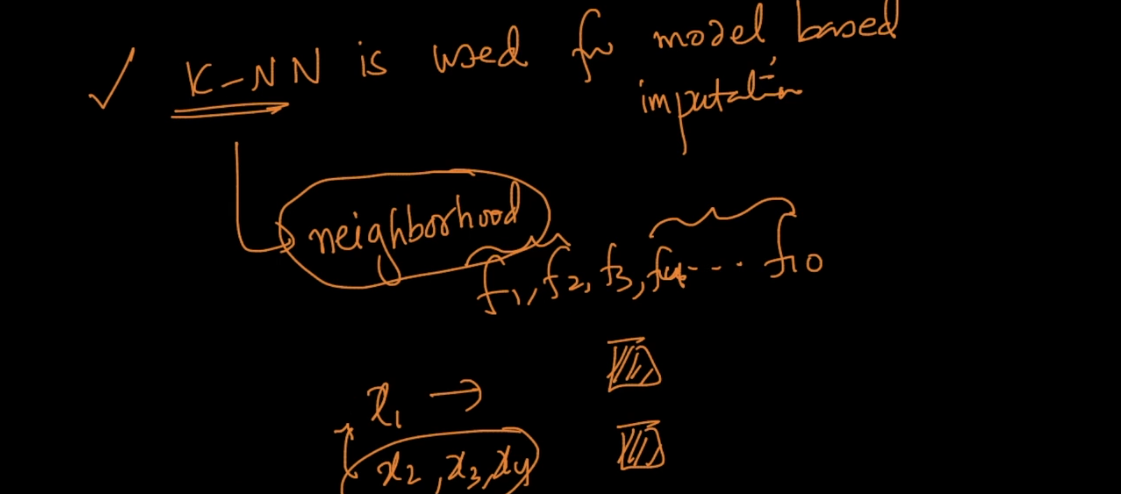 ✓ K-NN is used for model based
imputation
neighborhood
f1, f2, f3, f4--- f10
x1 →
x2, x3, x4